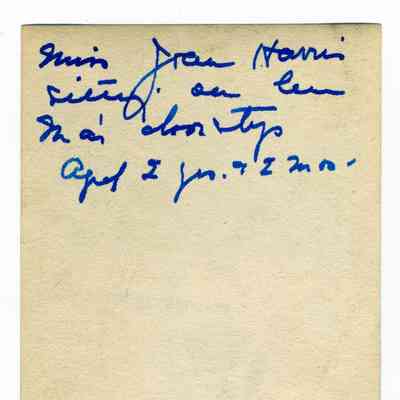 Miss Joan Harris
sitting on her
Ma's doorsteps
Aged 2 yrs. & 2 mos.